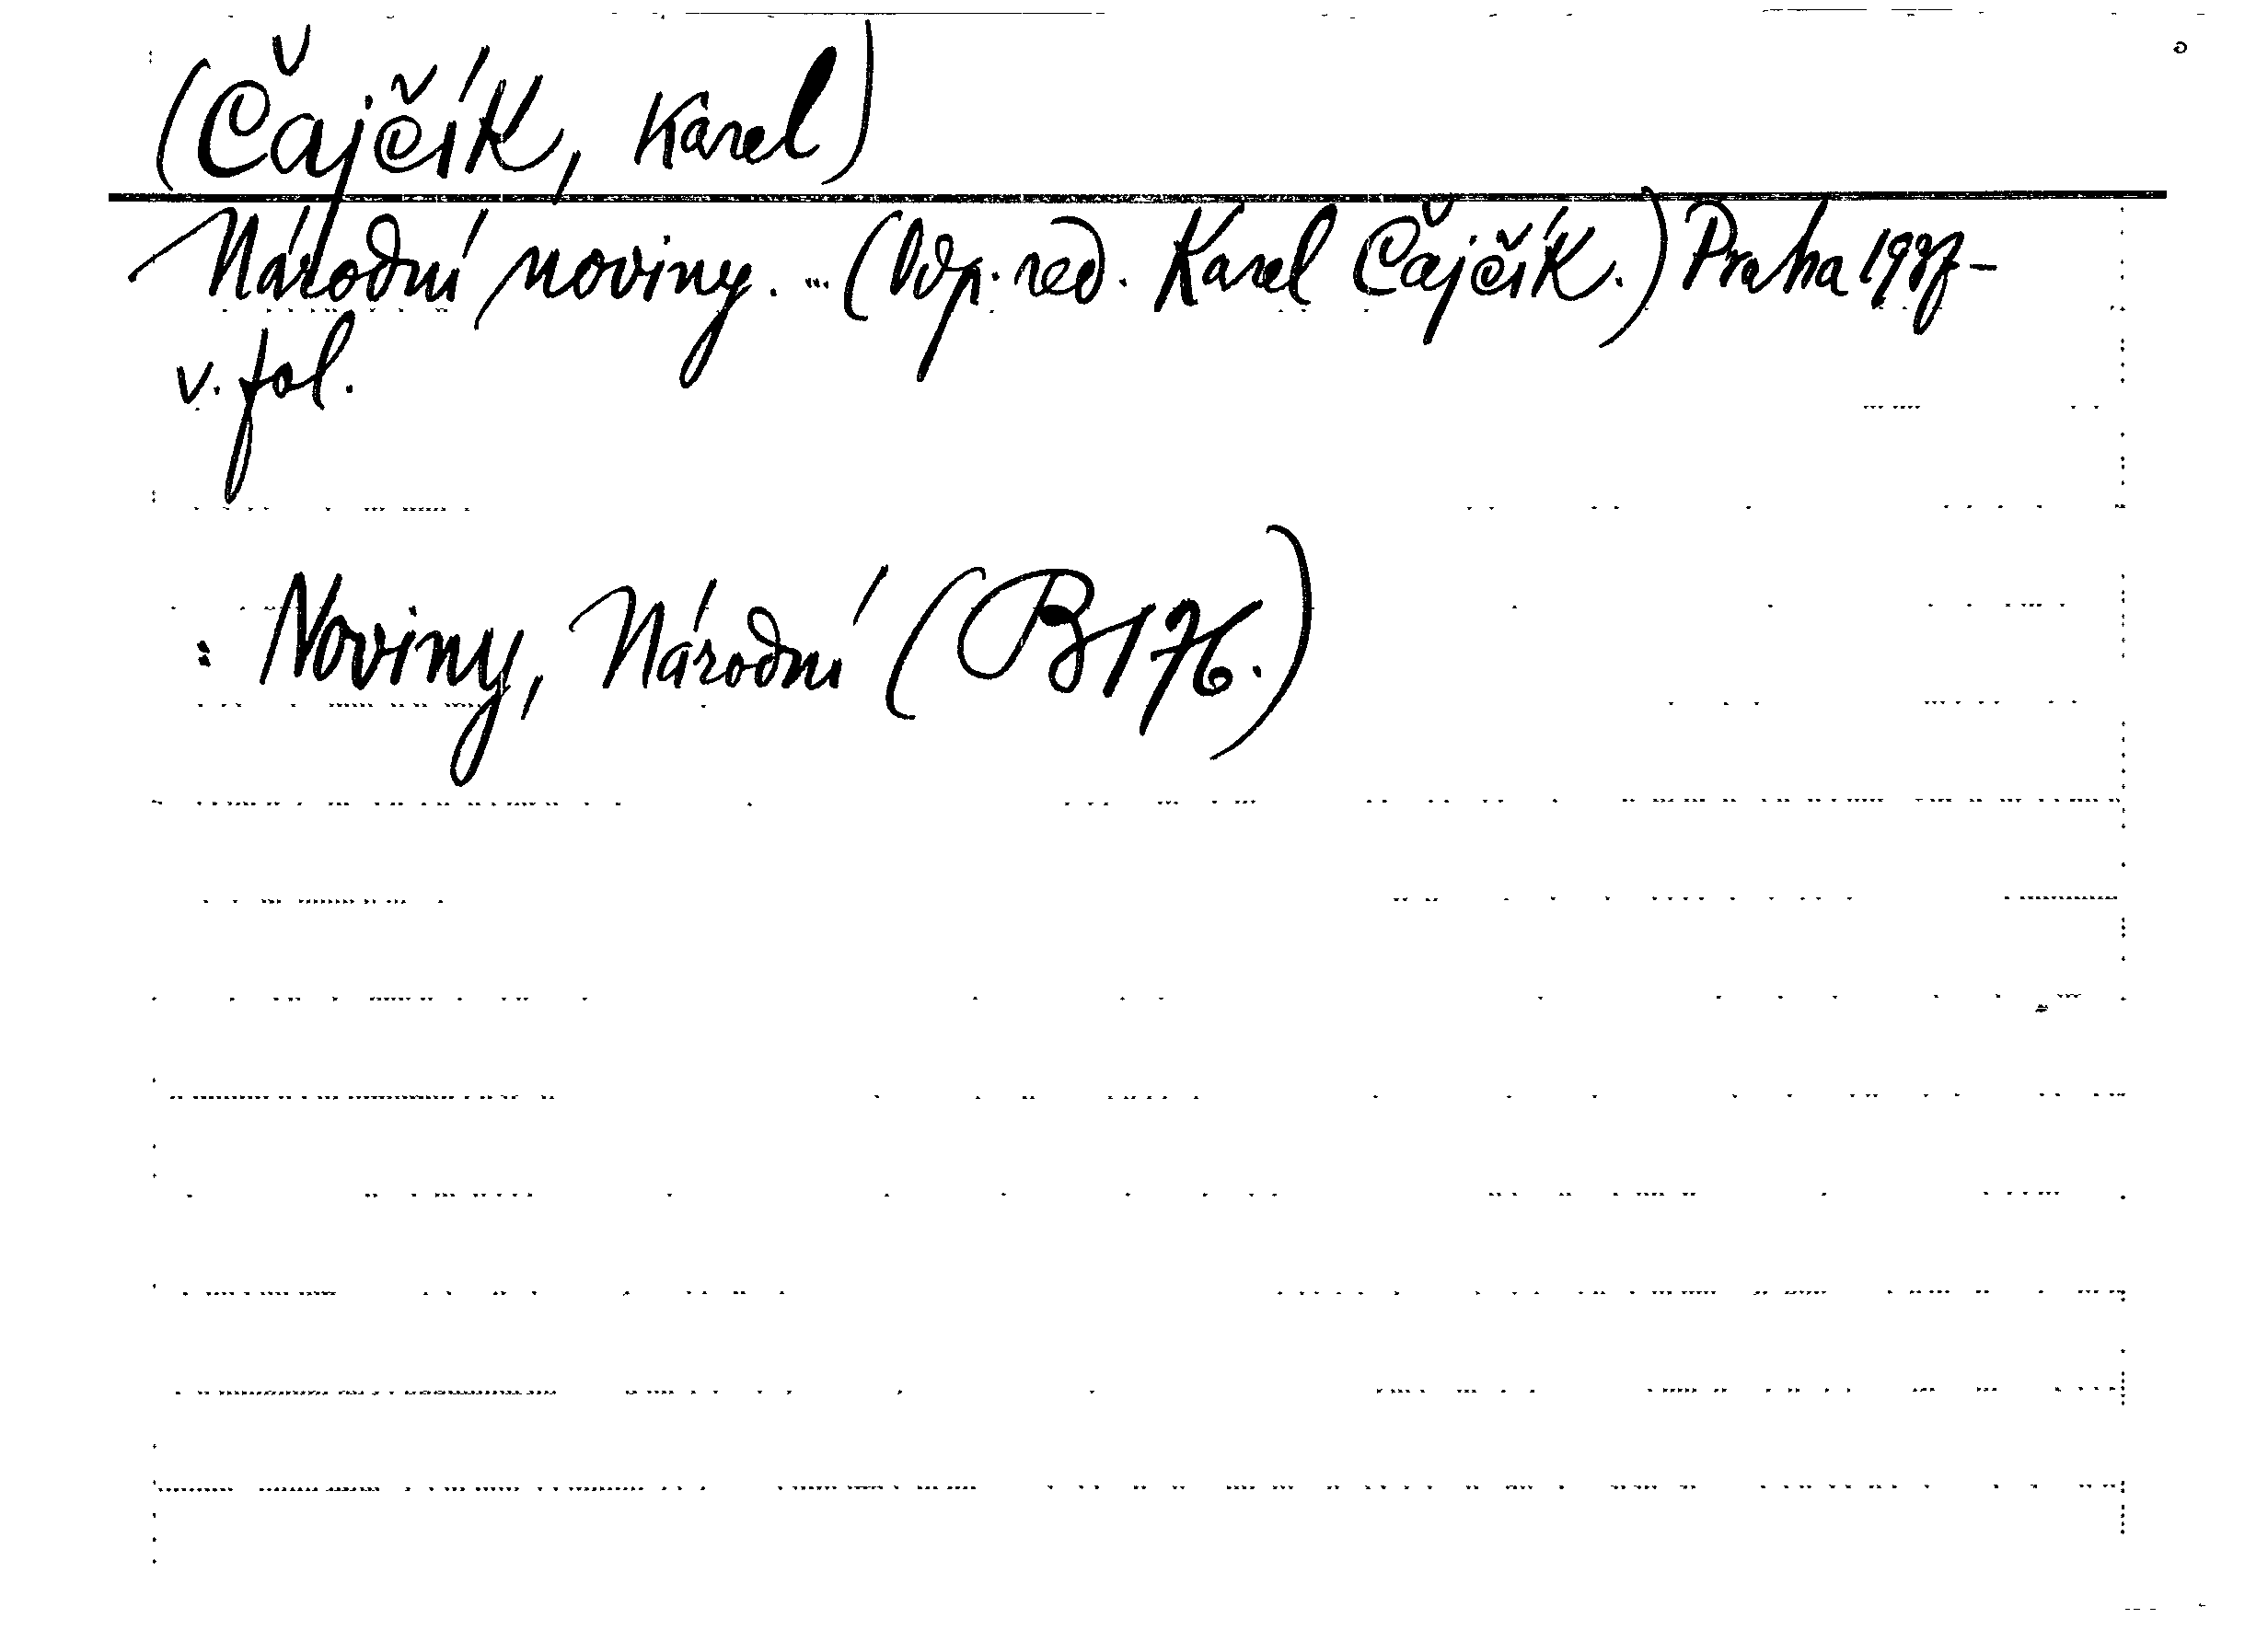 (Čajčík, Karel)
Národní noviny. ... (Odp. red. Karel Čajčík.) Praha 1937-
v. fol.
: Noviny, Národní (B176.)